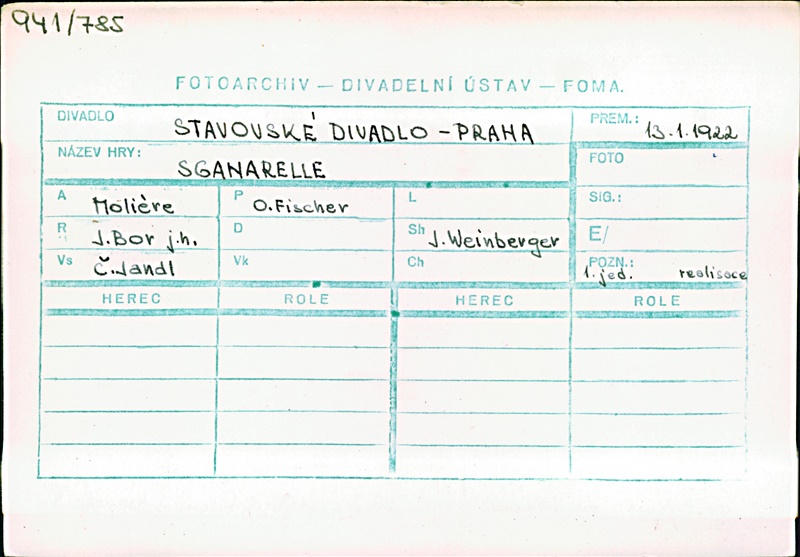 941/785
FOTOARCHIV — DIVADELNÍ ÚSTAV — FOMA.
DIVADLO STAVOVSKÉ DIVADLO - PRAHA PREM.: 13.1.1922
NÁZEV HRY: SGANARELLE FOTO
A Molière P O.Fischer L SIG.:
R J.Bor j.h. D Sh J.Weinberger E/
Vs Č.Jandl Vk Ch POZN.: 1.jed. realisace
HEREC ROLE HEREC ROLE